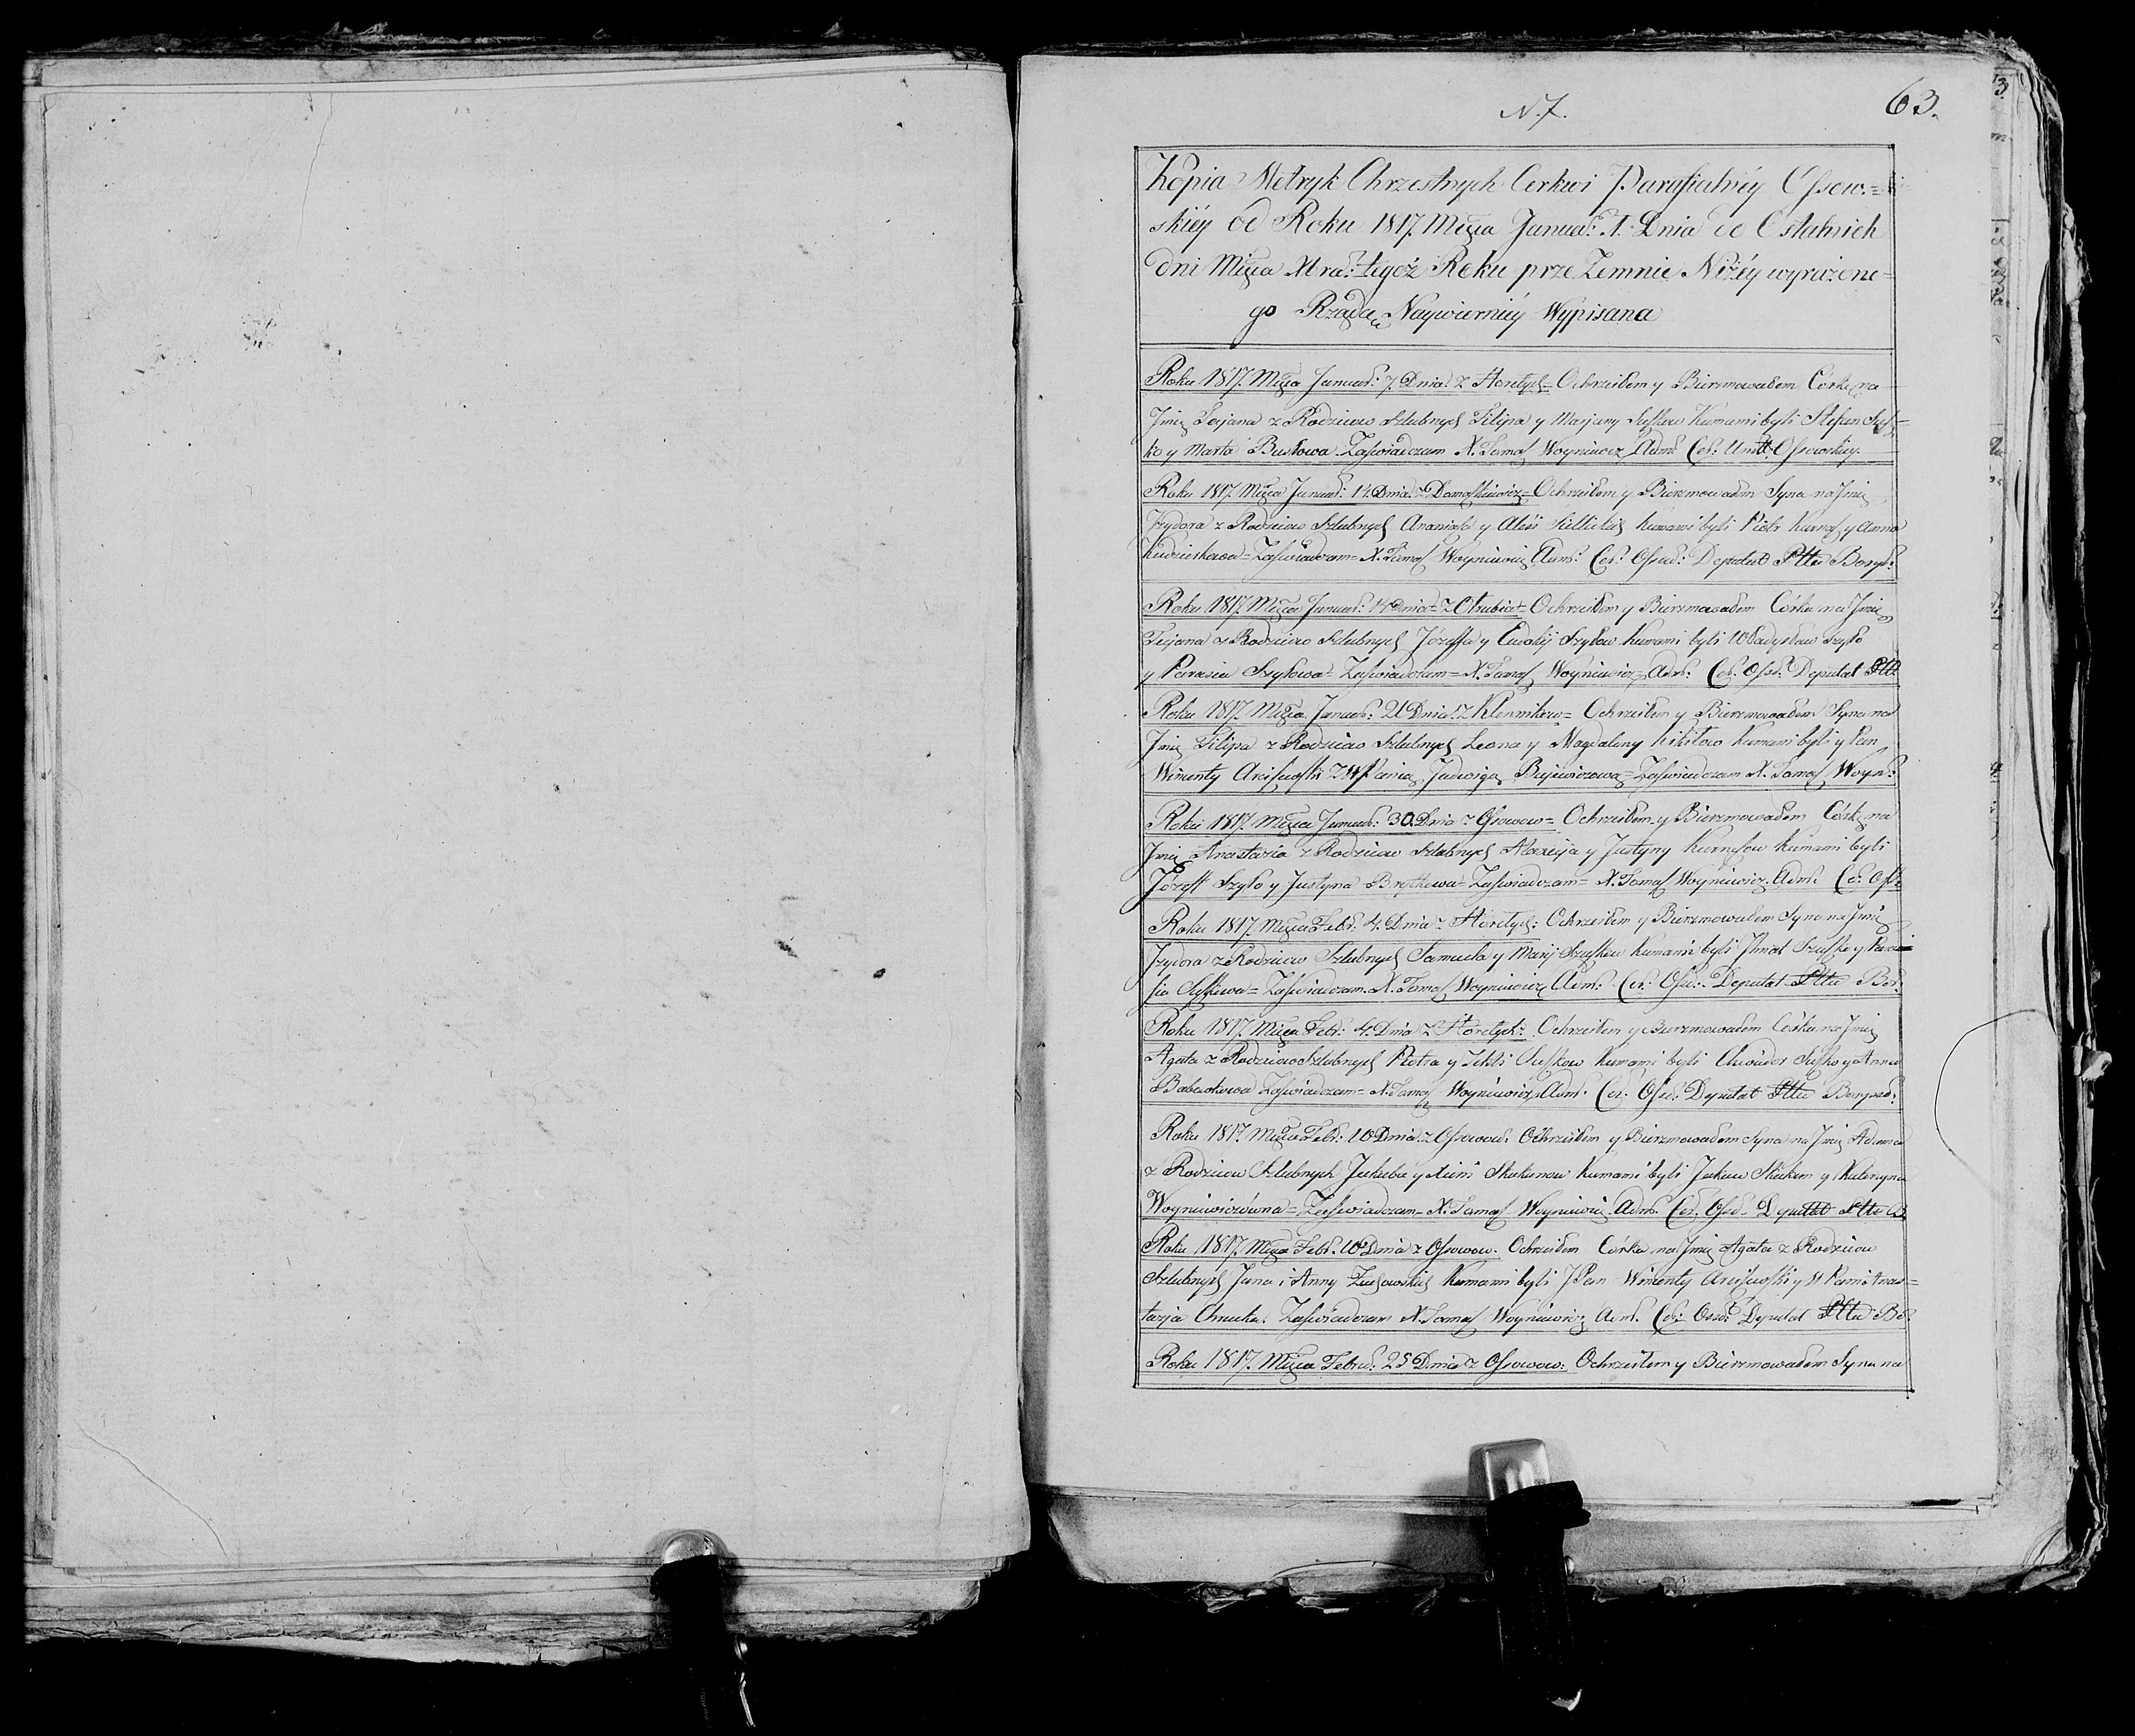 N. 7.
63.
Kopia Metryk Chrzestnych Cerkwi Parafialnéy Ossow=
skiéy od Roku 1817. Mięca Januar: 1. Dnia do Ostatnich
dni Mięca Xbra: tegoż Roku prze Zemnie Niżéy wyrażone=
go Rządcę Naywierniéy Wypisana
Roku 1817. Mięca Januar: 7. Dnia z Horełych= Ochrzciłem y Bierzmowałem Córkę na
Jmię Tacjana z Rodzicow Szlubnych Filipa y Marjany Suszkow Kumami byli Stefan
ko y Marta Zaswiadczam X. Tomasz Woyniewicz Adm: Cer: Ossowskiey.
Roku 1817. Mięca Januar: 14. Dnia z Ochrzciłem y Bierzmowałem Syna na Jmię
Jzydora z Rodzicow Szlubnych Kumami byli Piotr y Anna
Zaswiadczam= X. Tomasz Woyniewicz Adm: Cer: Ossow: Deputat Pttu Borys:
Roku 1817. Mięca Januar: 14 Dnia z Ochrzciłem y Bierzmowałem Córkę na Jmię
z Rodzicow Szlubnych Józeffa y Szyłow Kumami byli Władysław Szyło
y Parasia Szyłowa= Zaswiadczam= X. Tomasz Woyniewicz Adm: Cer: Oss: Deputat Ptt:
Roku 1817. Mięca Januar: 21 Dnia z Klennikow= Ochrzciłem y Bierzmowałem Syna na
Jmię Filipa z Rodzicow Szlubnych Leona y Magdaleny Kumami byli y Pan
Wincenty Arciszewski z W Panią Jadwigą Zaswiadczam X. Tomasz Woyn:
Roku 1817. Mięca Januar: 30. Dnia z Ossowow= Ochrzciłem y Bierzmowałem Córkę na
Jmię Anastazia z Rodzicow Szlubnych Alaxieja y Justyny Kumami byli
Józeff Szyło y Justyna Zaswiadczam= X. Tomasz Woyniewicz Adm: Ce: Oss:
Roku 1817. Mięca Febr: 4. Dnia z Horełych: Ochrzciłem y Bierzmowałem Syna na Jmię
Jzydora z Rodzicow Szlubnych Samuela y Marij Kumami byli y Para=
sia Zaswiadczam. X. Tomasz Woyniewicz Adm: Cer: Oss: Deputat Pttu Bor:
Roku 1817. Mięca Febr: 4. Dnia z Horełych: Ochrzciłem y Bierzmowałem Córkę na Jmię
Agata z Rodzicow Szlubnych Piotra y Tekli Suszkow Kumami byli Suszko y Anna
Zaswiadczam= X. Tomasz Woyniewicz Adm: Cer: Oss: Deputat Pttu Borysow:
Roku 1817. Mięca Febr: 10 Dnia z Ossowow: Ochrzciłem y Bierzmowałem Syna na Jmię Adama
z Rodzicow Szlubnych Jakuba y Skakunow Kumami byli Skakun y Kateryna
Woyniewiczówna= Zaswiadczam= X. Tomasz Woyniewicz Adm: Cer: Oss: Deputat Pttu B.
Roku 1817. Mięca Febr: 10 Dnia z Ossowow. Ochrzciłem Córkę na Jmię Agata z Rodzicow
Szlubnych Jana i Anny Kumami byli JPan Wincenty Arciszewski y W Pani Anas=
tazja Zaswiadczam X. Tomasz Woyniewicz Adm. Cer: Oss: Deputat Pttu Bo:
Roku 1817. Mięca Febru: 25 Dnia z Ossowow: Ochrzciłem y Bierzmowałem Syna na